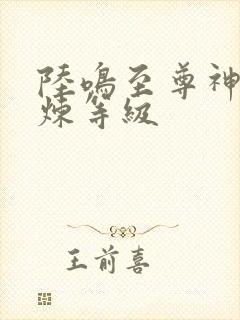 陸鳴至尊神
煉等級
王前喜